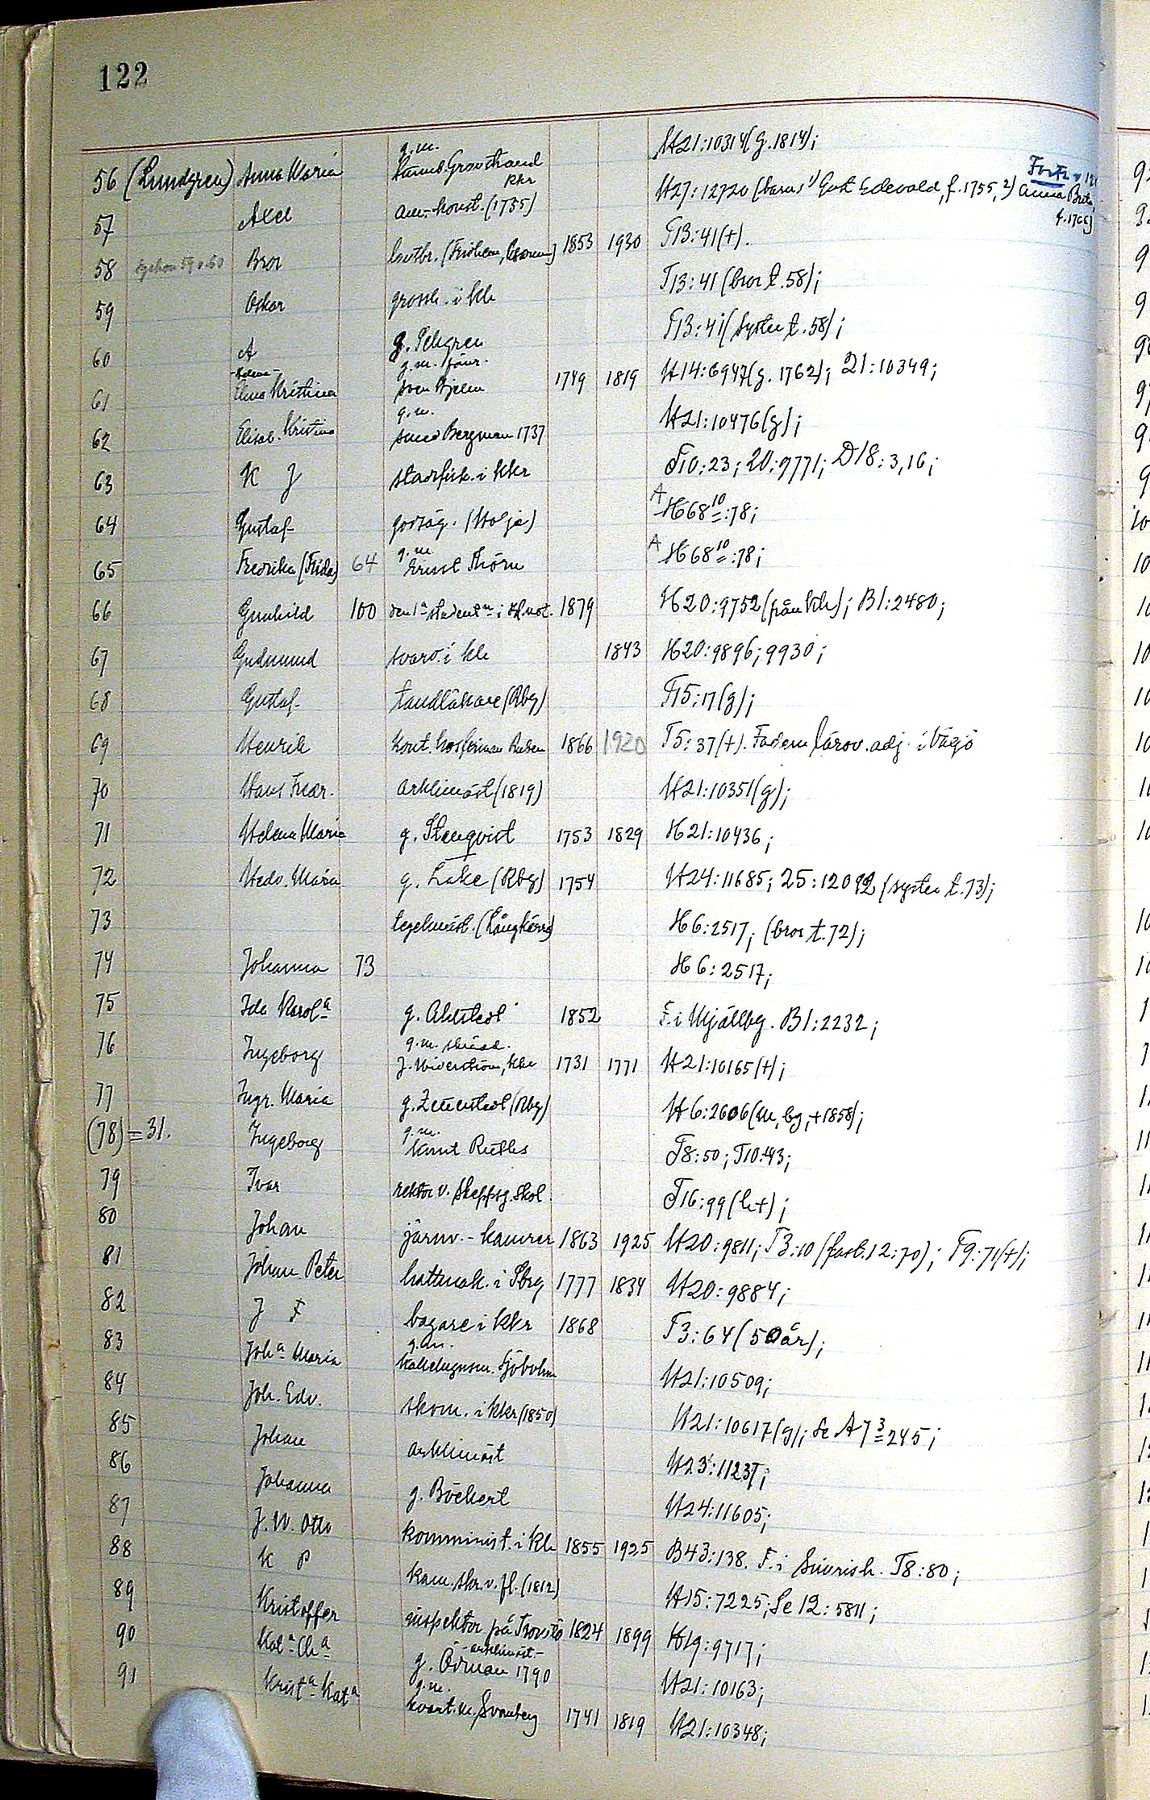 122
56 (Lundgren) Anna Maria g.m. Grovstrand kkr H21:10314(g.1814);
57 Axel am.-konst. (1755) H27:12720 (barns 1) Gust Edevald, f.1755, 2) Anna Brita, f.1766)
58 syskon 59 o 60 Bror lantbr. (Fridhem, 1853 1930 T13:41(+).
59 Oskar grossh. i kh T13:41 (bror t.58);
60 A g. Pehgren T13:41 (syster t.58);
61 Elena Kristina g.m. Sven Bjelm 1749 1819 H14:6947(g. 1762); 21:10349;
62 Elisab. Kristina g.m. smed Bergman 1737 H21:10476(g);
63 K J stadsfisk. i kkr T10:23; 20:9771; D18:3,16;
64 Gustaf godsäg. (Holje) A H68 10:78;
65 Fredrika (Frida) 64 g.m. Ernst Thörn A H68 10:78;
66 Gunhild 100 den 1a studenta i 1879 H20:9752 (från kh); B1:2480;
67 Gudmund svarv. i kh 1843 H20:9896; 9930;
68 Gustaf tandläkare (Rby) T15:17(g);
69 Henrik kont. hos firman Ruben 1866 1920 T5:37(+). Fadern lärov.adj. i Växjö
70 Hans Fredr. arklimäst (1819) H21:10351(g);
71 Helena Maria g. Stenqvist 1753 1829 H21:10436;
72 Hedv. Maria g. Lake (Rby) 1754 H24:11685; 25:12092 (syster t.73);
73 tegelmäst. H6:2517; (bror t.72);
74 Johanna 73 H6:2517;
75 Ida Karola g. Ahlstedt 1852 F. i Mjällby. B1:2232;
76 Ingeborg g.m. skräd. J. Widerström, kkr 1731 1771 H21:10165(+);
77 Ingr. Maria g. Zetterstedt (Rby) H6:2606(m, bg, +1858);
(78)=31. Ingeborg g.m. Knut Ruthes T8:50; T10:43;
79 Ivar rektor v. skeppsg. skol. T16:99(h+);
80 Johan järnv.-kamrer 1863 1925 H20:9811; T3:10 (fast. 12:70); T9:71(+);
81 Johan Peter hattmak. i Sbrg 1777 1834 H20:9884;
82 J F bagare i kkr 1868 T3:64 (50 år);
83 Joha Maria g.m. kakelugnsm. Sjöholm H21:10509;
84 Joh. Edv. skom. i kkr (1850) H21:10617(g); Se A7 3 245;
85 Johan arklimäst H23:11237;
86 Johanna g. Böckert H24:11605;
87 J.W. Otto komminist. i kh 1855 1925 B43:138. F. i Simrish. T8:80;
88 K P kam.skr. v. fl. (1812) H15:7225; Se 12:5811;
89 Kristoffer inspektor på Trossö 1824 1899 H19:9717;
90 Kata Cha g. Ödman -arklimäst.- 1790 H21:10163;
91 Krista Kata g.m. kvart.m. Svanberg 1741 1819 H21:10348;